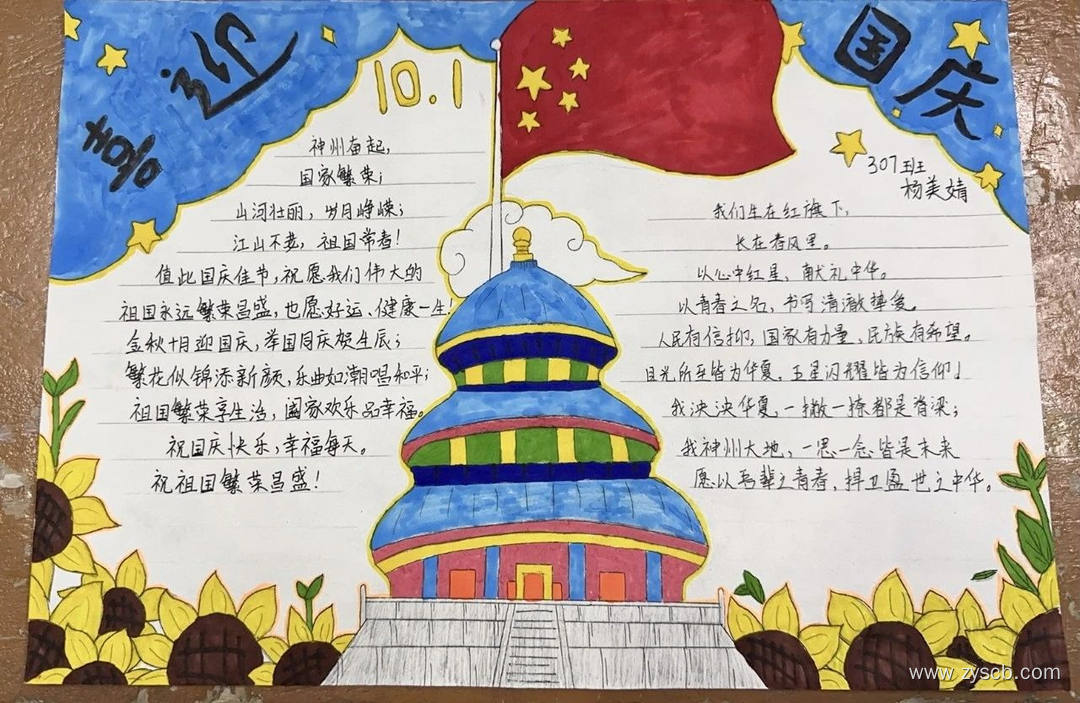 喜迎
国庆
10.1
神州奋起，
国家繁荣；
山河壮丽，岁月峥嵘；
江山不老，祖国常春！
值此国庆佳节，祝愿我们伟大的
祖国永远繁荣昌盛，也愿好运、健康一生！
金秋十月迎国庆，举国同庆贺生辰；
繁花似锦添新颜，乐曲如潮唱和平；
祖国繁荣享生活，阖家欢乐品幸福。
祝国庆快乐，幸福每天。
祝祖国繁荣昌盛！
307班
杨美婧
我们生在红旗下，
长在春风里。
以心中红星，献礼中华。
以青春之名，书写清澈挚爱。
人民有信仰，国家有力量，民族有希望。
目光所至皆为华夏，五星闪耀皆为信仰！
我泱泱华夏，一撇一捺都是脊梁；
我神州大地，一思一念皆是未来
愿以吾辈之青春，捍卫盛世之中华。
www.zysob.com